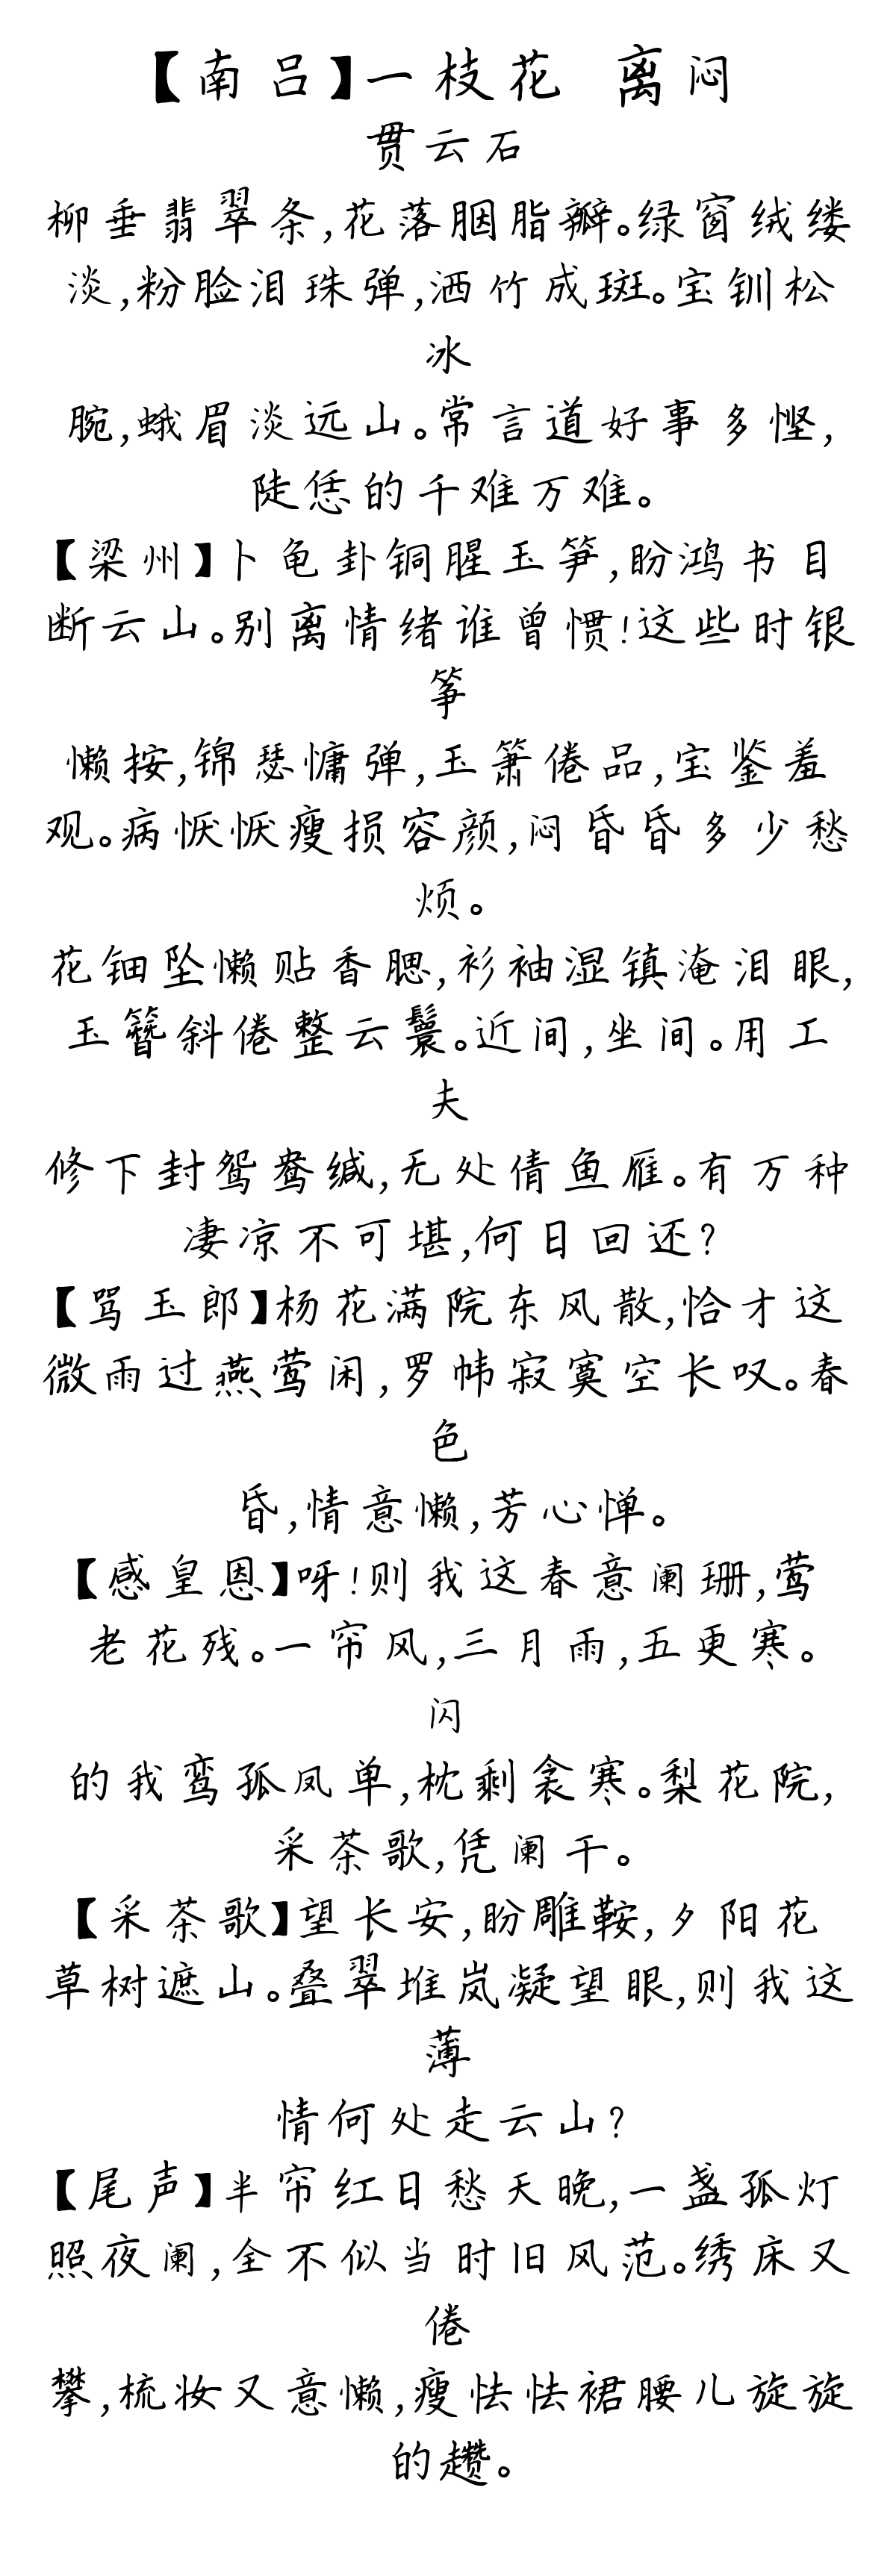 【南吕】一枝花 离闷
贯云石
柳垂翡翠条,花落胭脂瓣。绿窗绒缕
淡,粉脸泪珠弹,洒竹成斑。宝钏松
冰
腕,蛾眉淡远山。常言道好事多悭,
陡恁的千难万难。
【梁州】卜龟卦铜腥玉笋,盼鸿书目
断云山。别离情绪谁曾惯!这些时银
筝
懒按,锦瑟慵弹,玉箫倦品,宝鉴羞
观。病恹恹瘦损容颜,闷昏昏多少愁
烦。
花钿坠懒贴香腮,衫袖湿镇淹泪眼,
玉簪斜倦整云鬟。近间,坐间。用工
夫
修下封鸳鸯缄,无处倩鱼雁。有万种
凄凉不可堪,何日回还?
【骂玉郎】杨花满院东风散,恰才这
微雨过燕莺闲,罗帏寂寞空长叹。春
色
昏,情意懒,芳心惮。
【感皇恩】呀!则我这春意阑珊,莺
老花残。一帘风,三月雨,五更寒。
闪
的我鸾孤凤单,枕剩衾寒。梨花院,
采茶歌,凭阑干。
【采茶歌】望长安,盼雕鞍,夕阳花
草树遮山。叠翠堆岚凝望眼,则我这
薄
情何处走云山?
【尾声】半帘红日愁天晚,一盏孤灯
照夜阑,全不似当时旧风范。绣床又
倦
攀,梳妆又意懒,瘦怯怯裙腰儿旋旋
的趱。